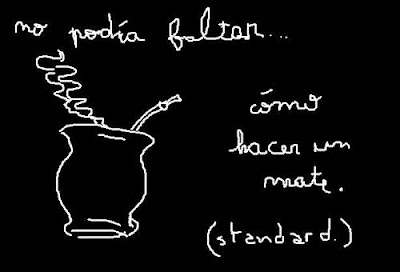 no podía faltar...
cómo
hacer un
mate.
(standard.)